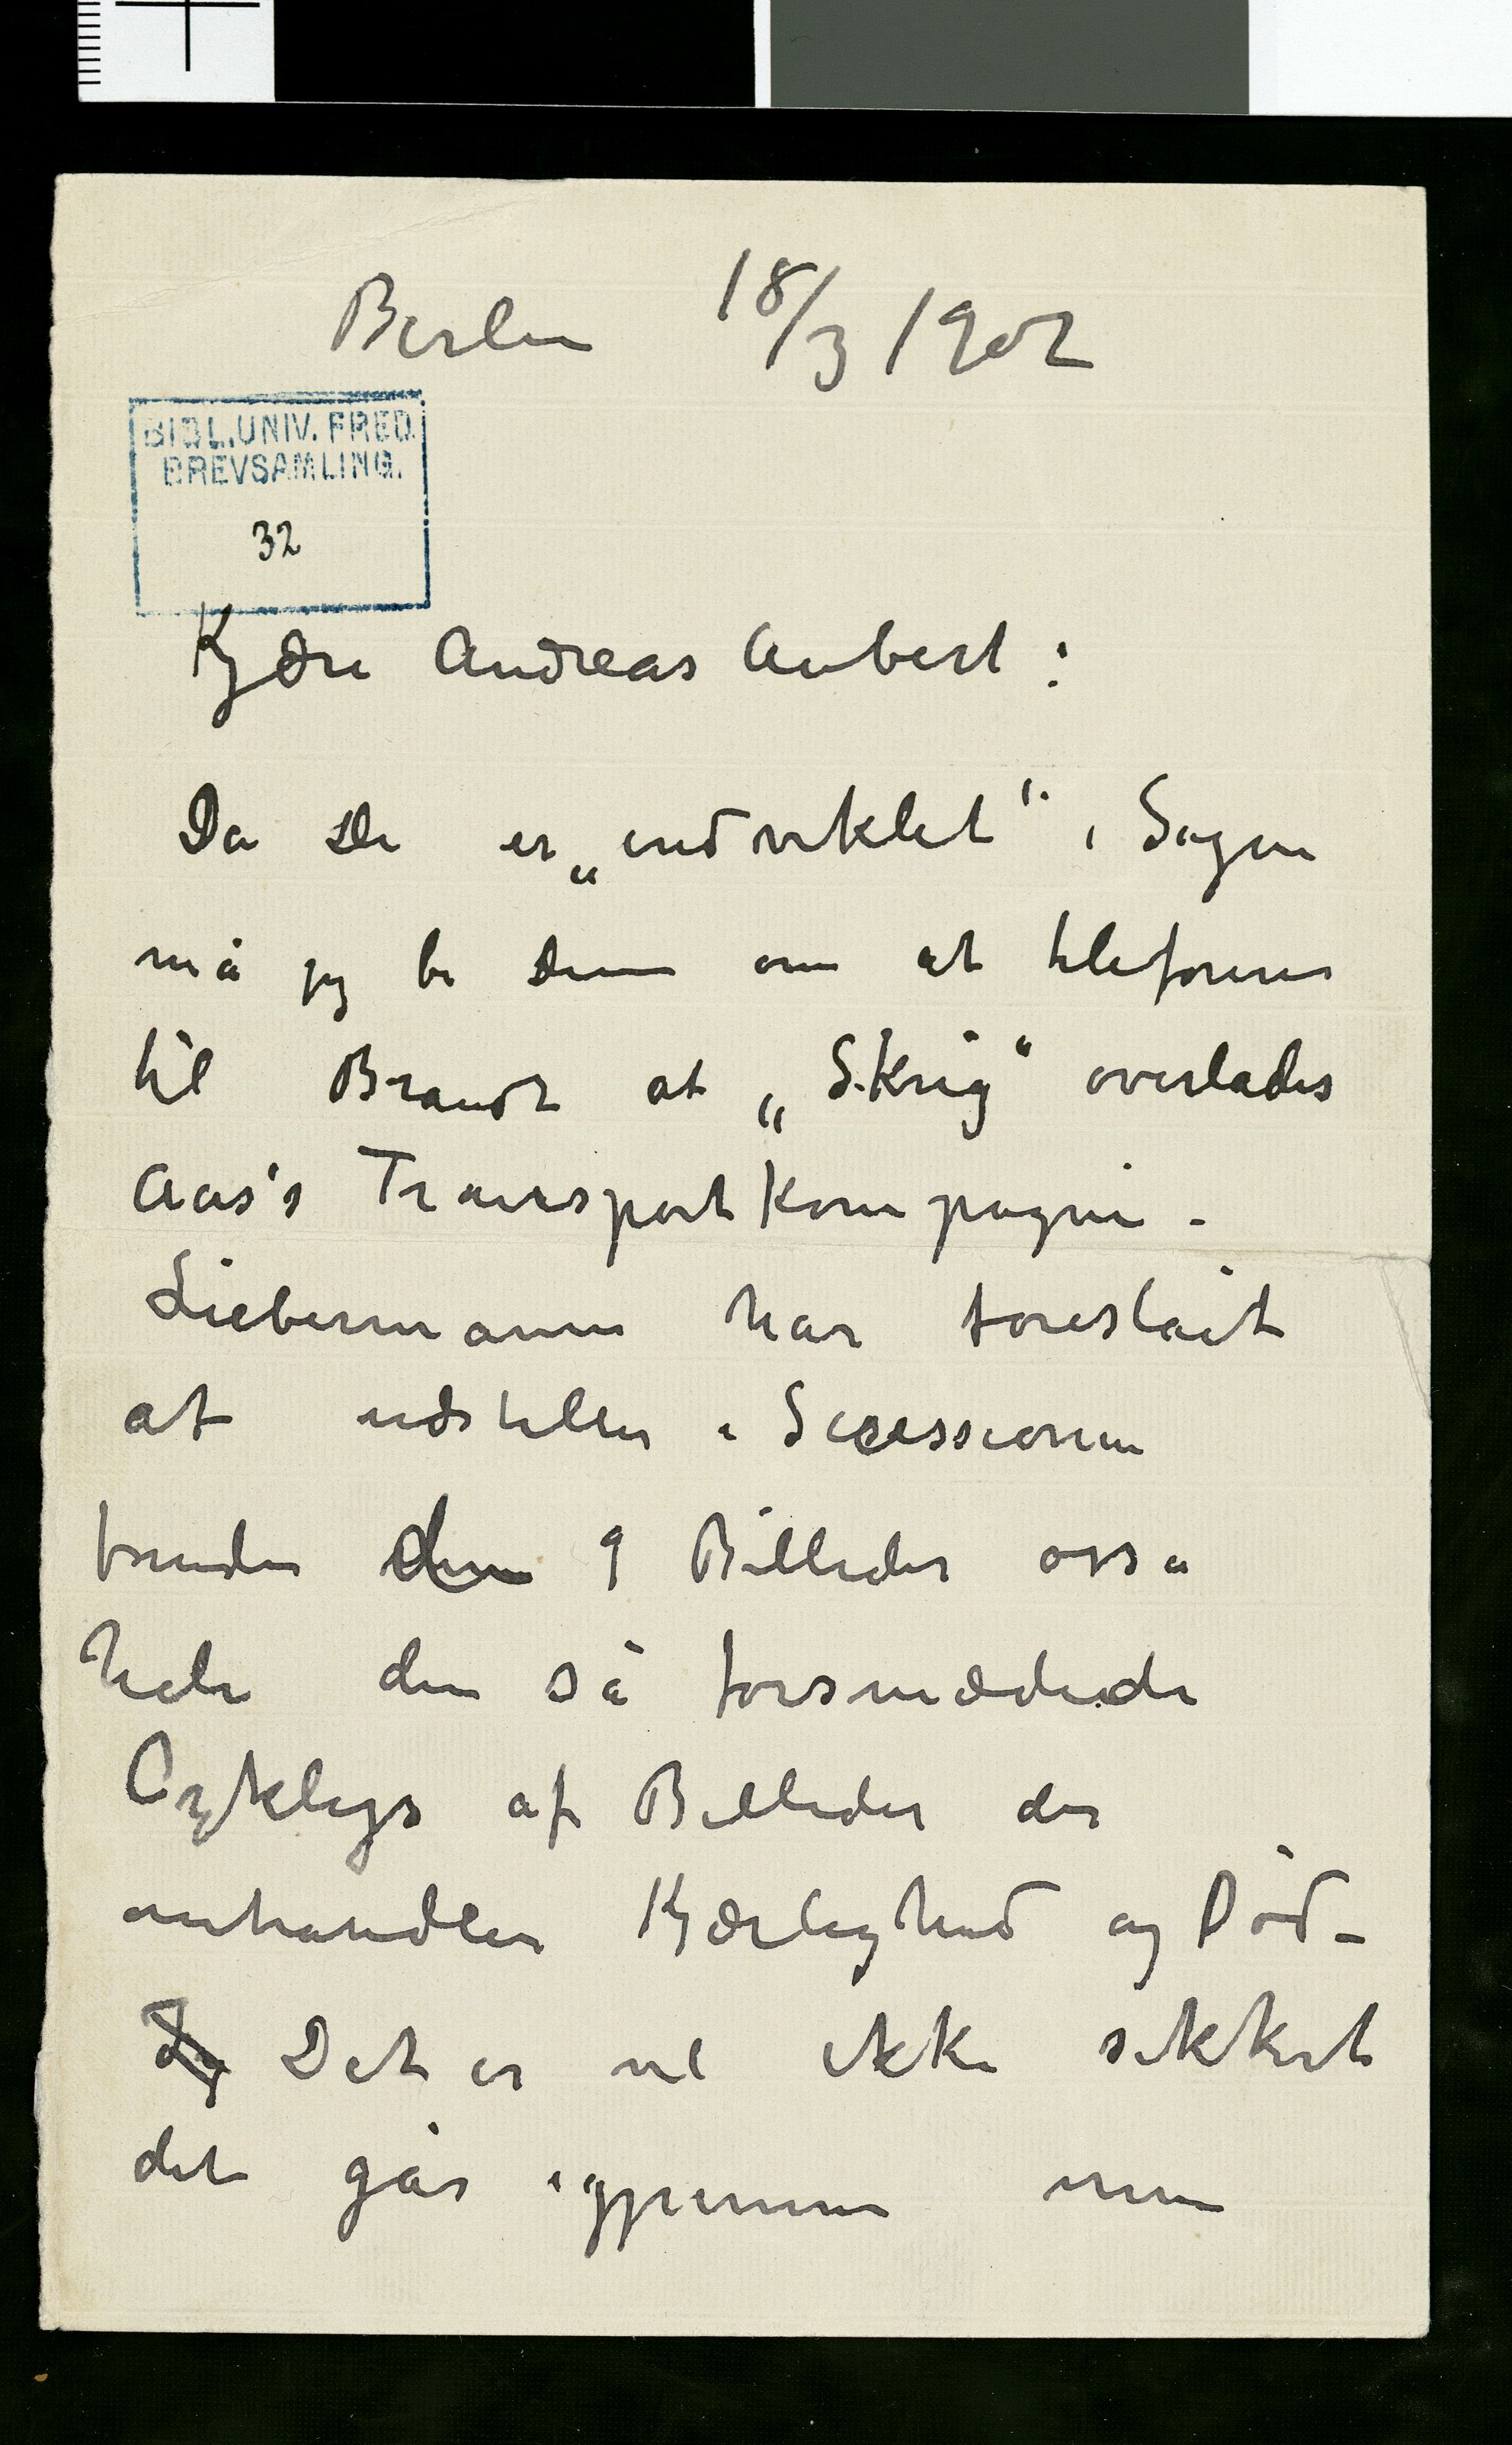 Berlin 18/3 1902
BIBL.UNIV. FRED.
BREVSAMLING.
32
Kjære Andreas Aubert:
Da De er „indviklet" i Sagen
må jeg be Dem om at telefonere
til Brandt at „Skrig" overlades
Aas's Transportkompagni –
Liebermann har foreslået
at udstilles i Secessionen
foruden den 9 Billeder osså
hele den så forsmædede
Cyklys af Billeder der
omhandler Kjærlighed og Død –
Jeg Det er vel ikke sikkert
det går igjennem men